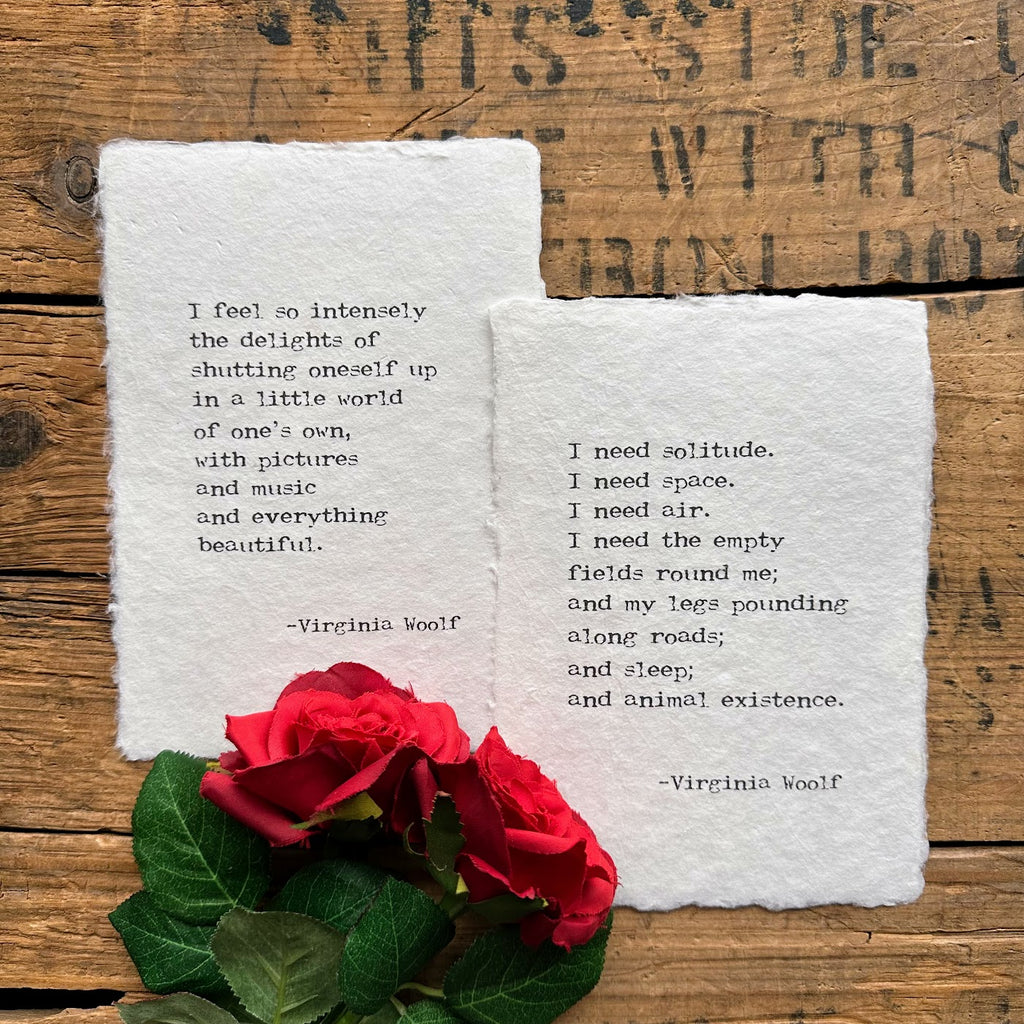 SIDE
WITH
I feel so intensely
the delights of
shutting oneself up
in a little world
of one's own,
with pictures
and music
and everything
beautiful.
-Virginia Woolf
I need solitude.
I need space.
I need air.
I need the empty
fields round me;
and my legs pounding
along roads;
and sleep;
and animal existence.
-Virginia Woolf